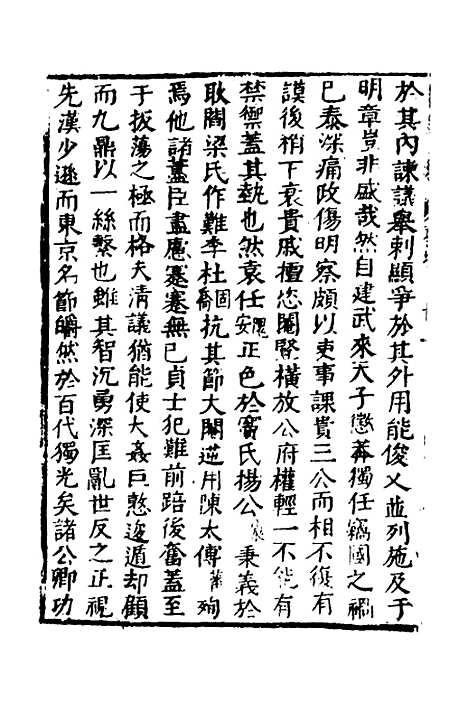 於其內諫議舉刺顯爭於其外用能俊乂並列施及于
明章豈非盛哉然自建武來天子懲莽獨任竊國之禍
已泰深痛政傷明察頗以吏事課責三公而相不復有
謨後稍下衰貴戚擅恣閹豎橫放公府權輕一不能有
禁禦蓋其埶也然袁任隗安正色於竇氏楊公秉義於
耿閻梁氏作難李杜固喬抗其節大閹逆用陳太傅蕃殉
焉他諸藎臣盡應蹇蹇無已貞士犯難前踣後奮蓋至
于板蕩之極而格夫清議猶能使大姦巨憝逡遁却顧
而九鼎以一絲繫也雖其智沉勇深匡亂世反之正視
先漢少遜而東京名節皭然於百代獨光矣諸公卿功